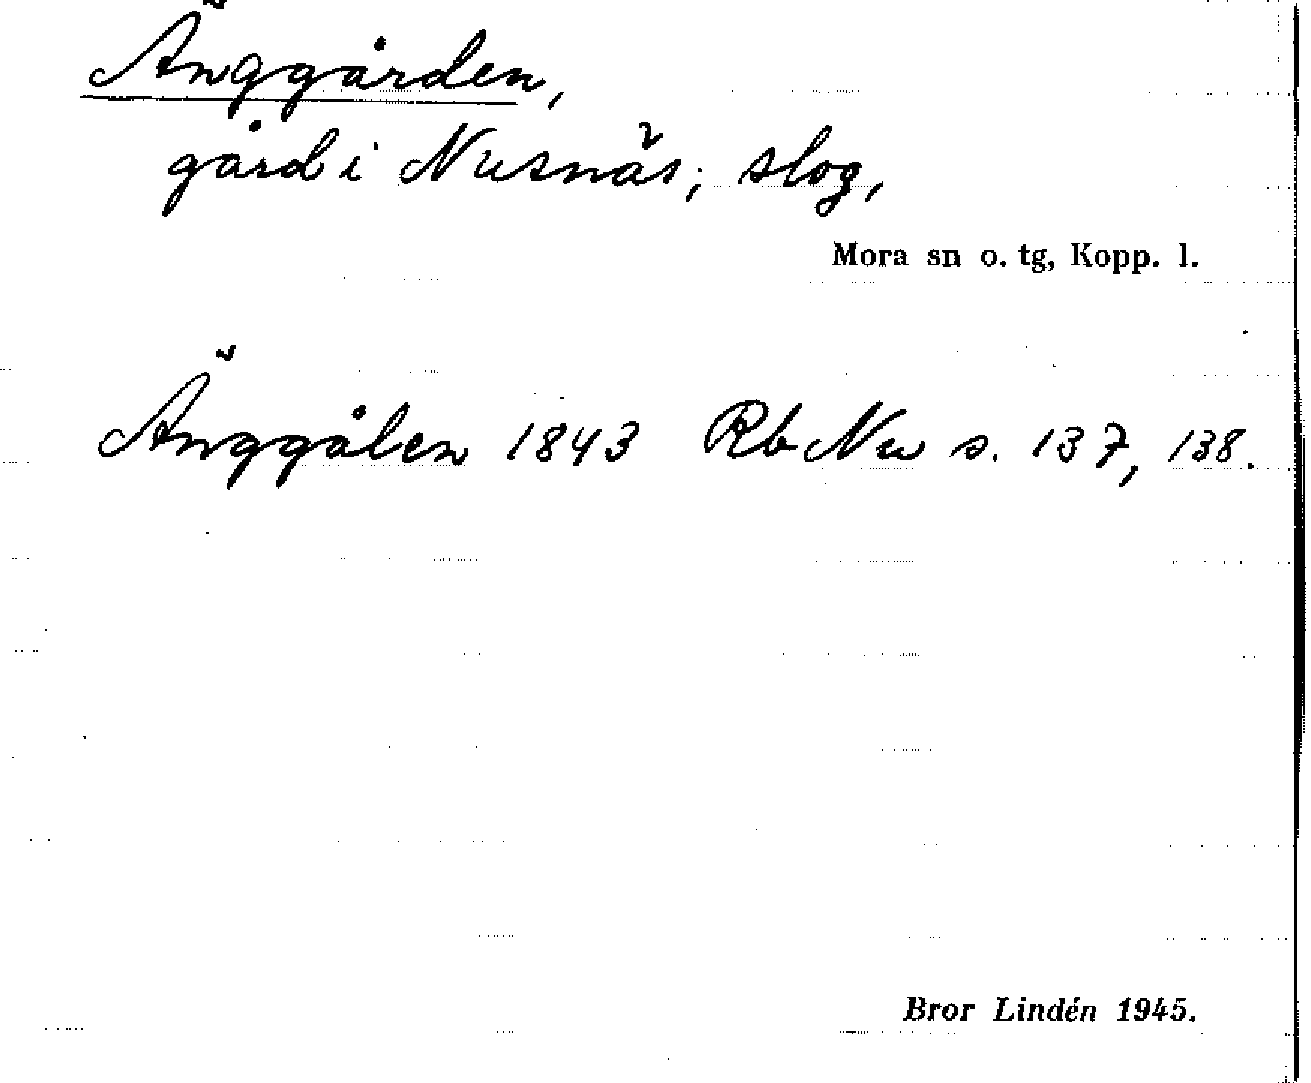 Änggården,
gård i Nusnäs; slog,
Mora sn o. tg, Kopp. l.
Änggålen 1843 Rb Nu s. 137, 138.
Bror Lindén 1945.